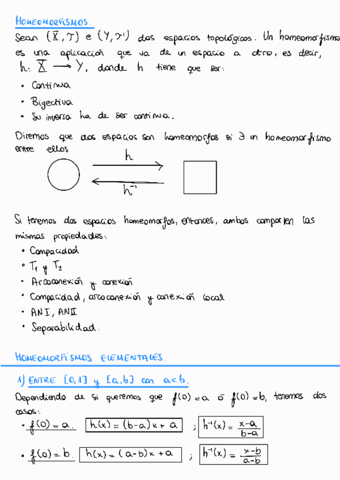 HOMEOMORFISMOS
Sean (X, τ) e (Y, τ') dos espacios topológicos. Un homeomorfismo
es una aplicación que va de un espacio a otro, es decir,
h: X → Y, donde h tiene que ser:
• Continua
• Biyectiva
• Su inversa ha de ser continua.
Diremos que dos espacios son homeomorfos si ∃ un homeomorfismo
entre ellos
h
h⁻¹
Si tenemos dos espacios homeomorfos, entonces, ambos comparten las
mismas propiedades:
• Compacidad
• T₁ y T₂
• Arcoconexión y conexión
• Compacidad, arcoconexión y conexión local
• ANI, ANII
• Separabilidad.
HOMEOMORFISMOS ELEMENTALES.
1) ENTRE [0,1] y [a,b] con a<b.
Dependiendo de si queremos que f(0)=a ó f(0)=b, tenemos dos
casos:
• f(0)=a. h(x)=(b-a)x+a ; h⁻¹(x)= x-a / b-a
• f(0)=b h(x)=(a-b)x+a ; h⁻¹(x)= x-b / a-b